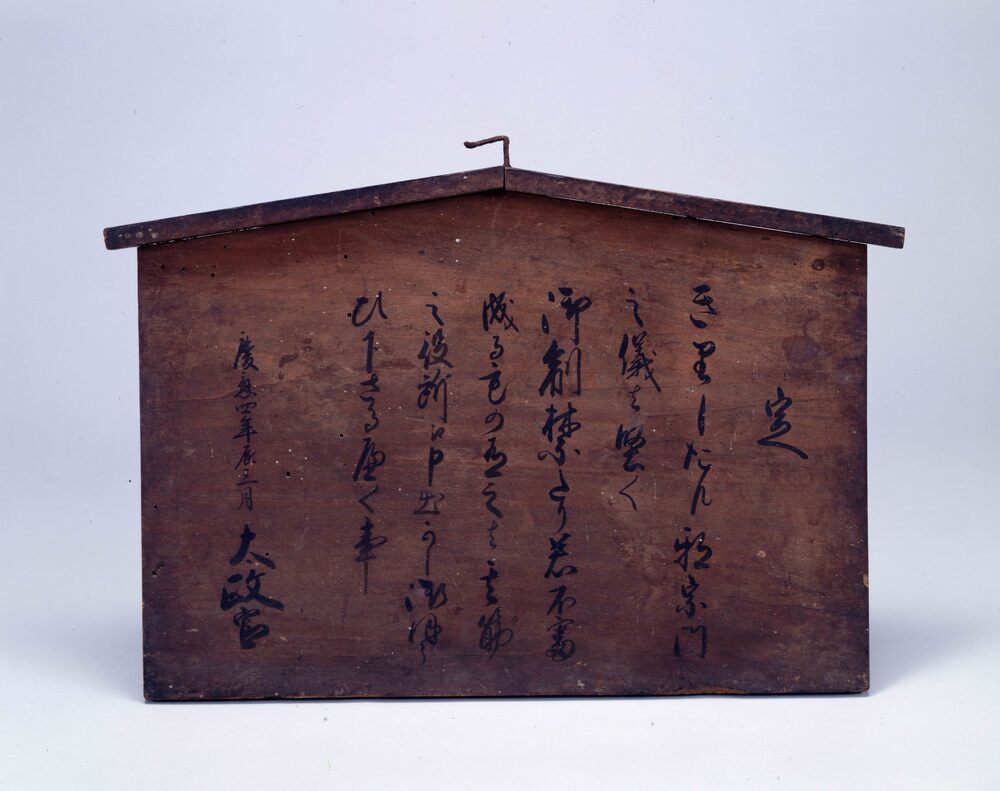 定
きりしたん邪宗門
之儀は堅く
御制禁たり若不審
成るもの有之は其筋
之役所江申出へし御ほう
ひ下さるへく事
慶應四年辰三月 太政官